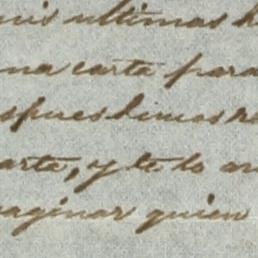 mis ultimas h
na carta para
spues dimos re
arta, y te lo an
aginar quien